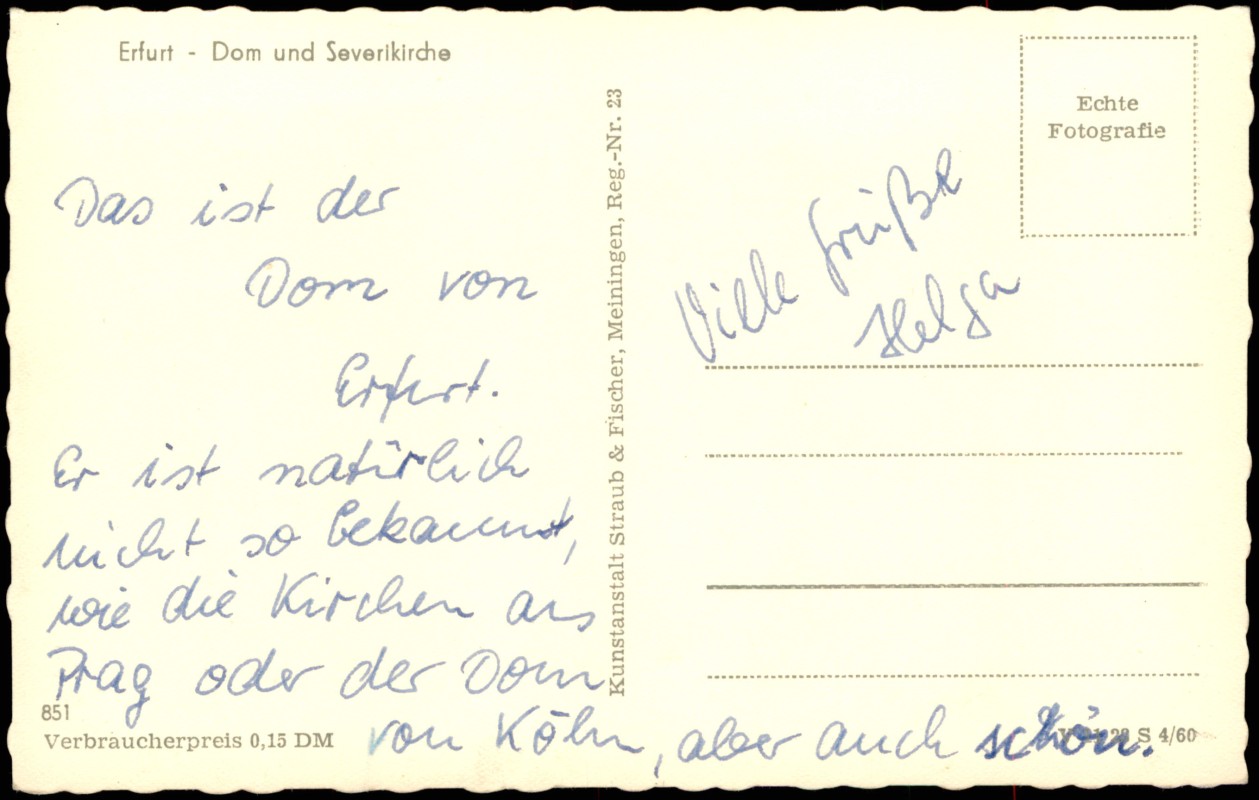 Erfurt - Dom und Severikirche
Das ist der
Dom von
Erfurt.
Er ist natürlich
nicht so bekannt,
wie die Kirchen aus
Prag oder der Dom
von Köln, aber auch schön.
851
Verbraucherpreis 0,15 DM
Kunstanstalt Straub & Fischer, Meiningen, Reg.-Nr. 23
Echte
Fotografie
Viele Grüße
Helga
S 4/60